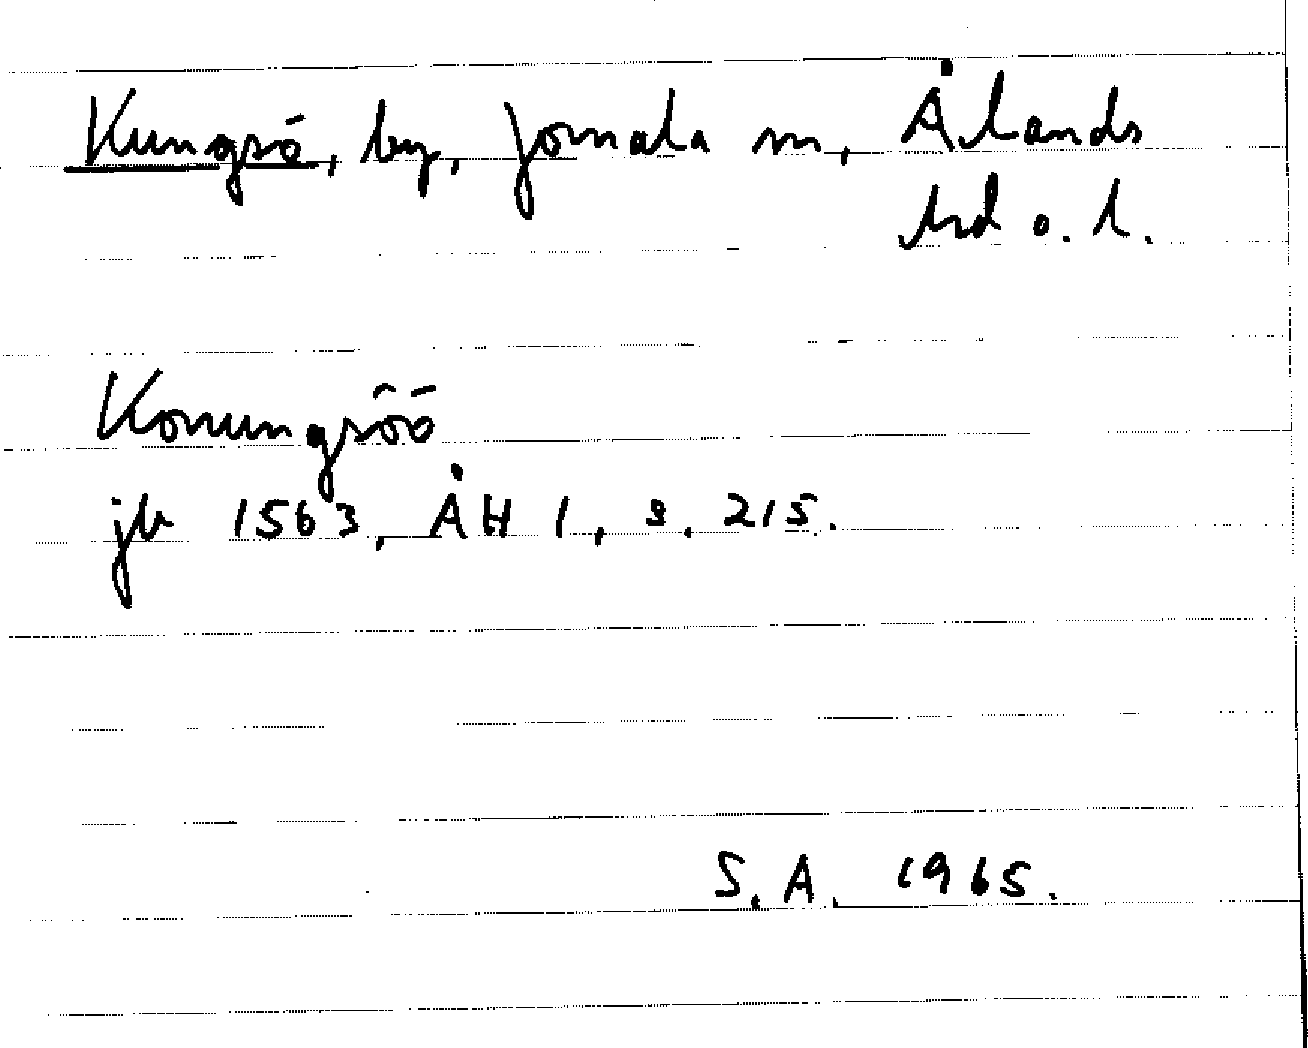 Kungsö, by, Jomala sn, Ålands
hd o. l.
Konungsöö
jb 1563, ÅH I, s. 215.
S.A. 1965.